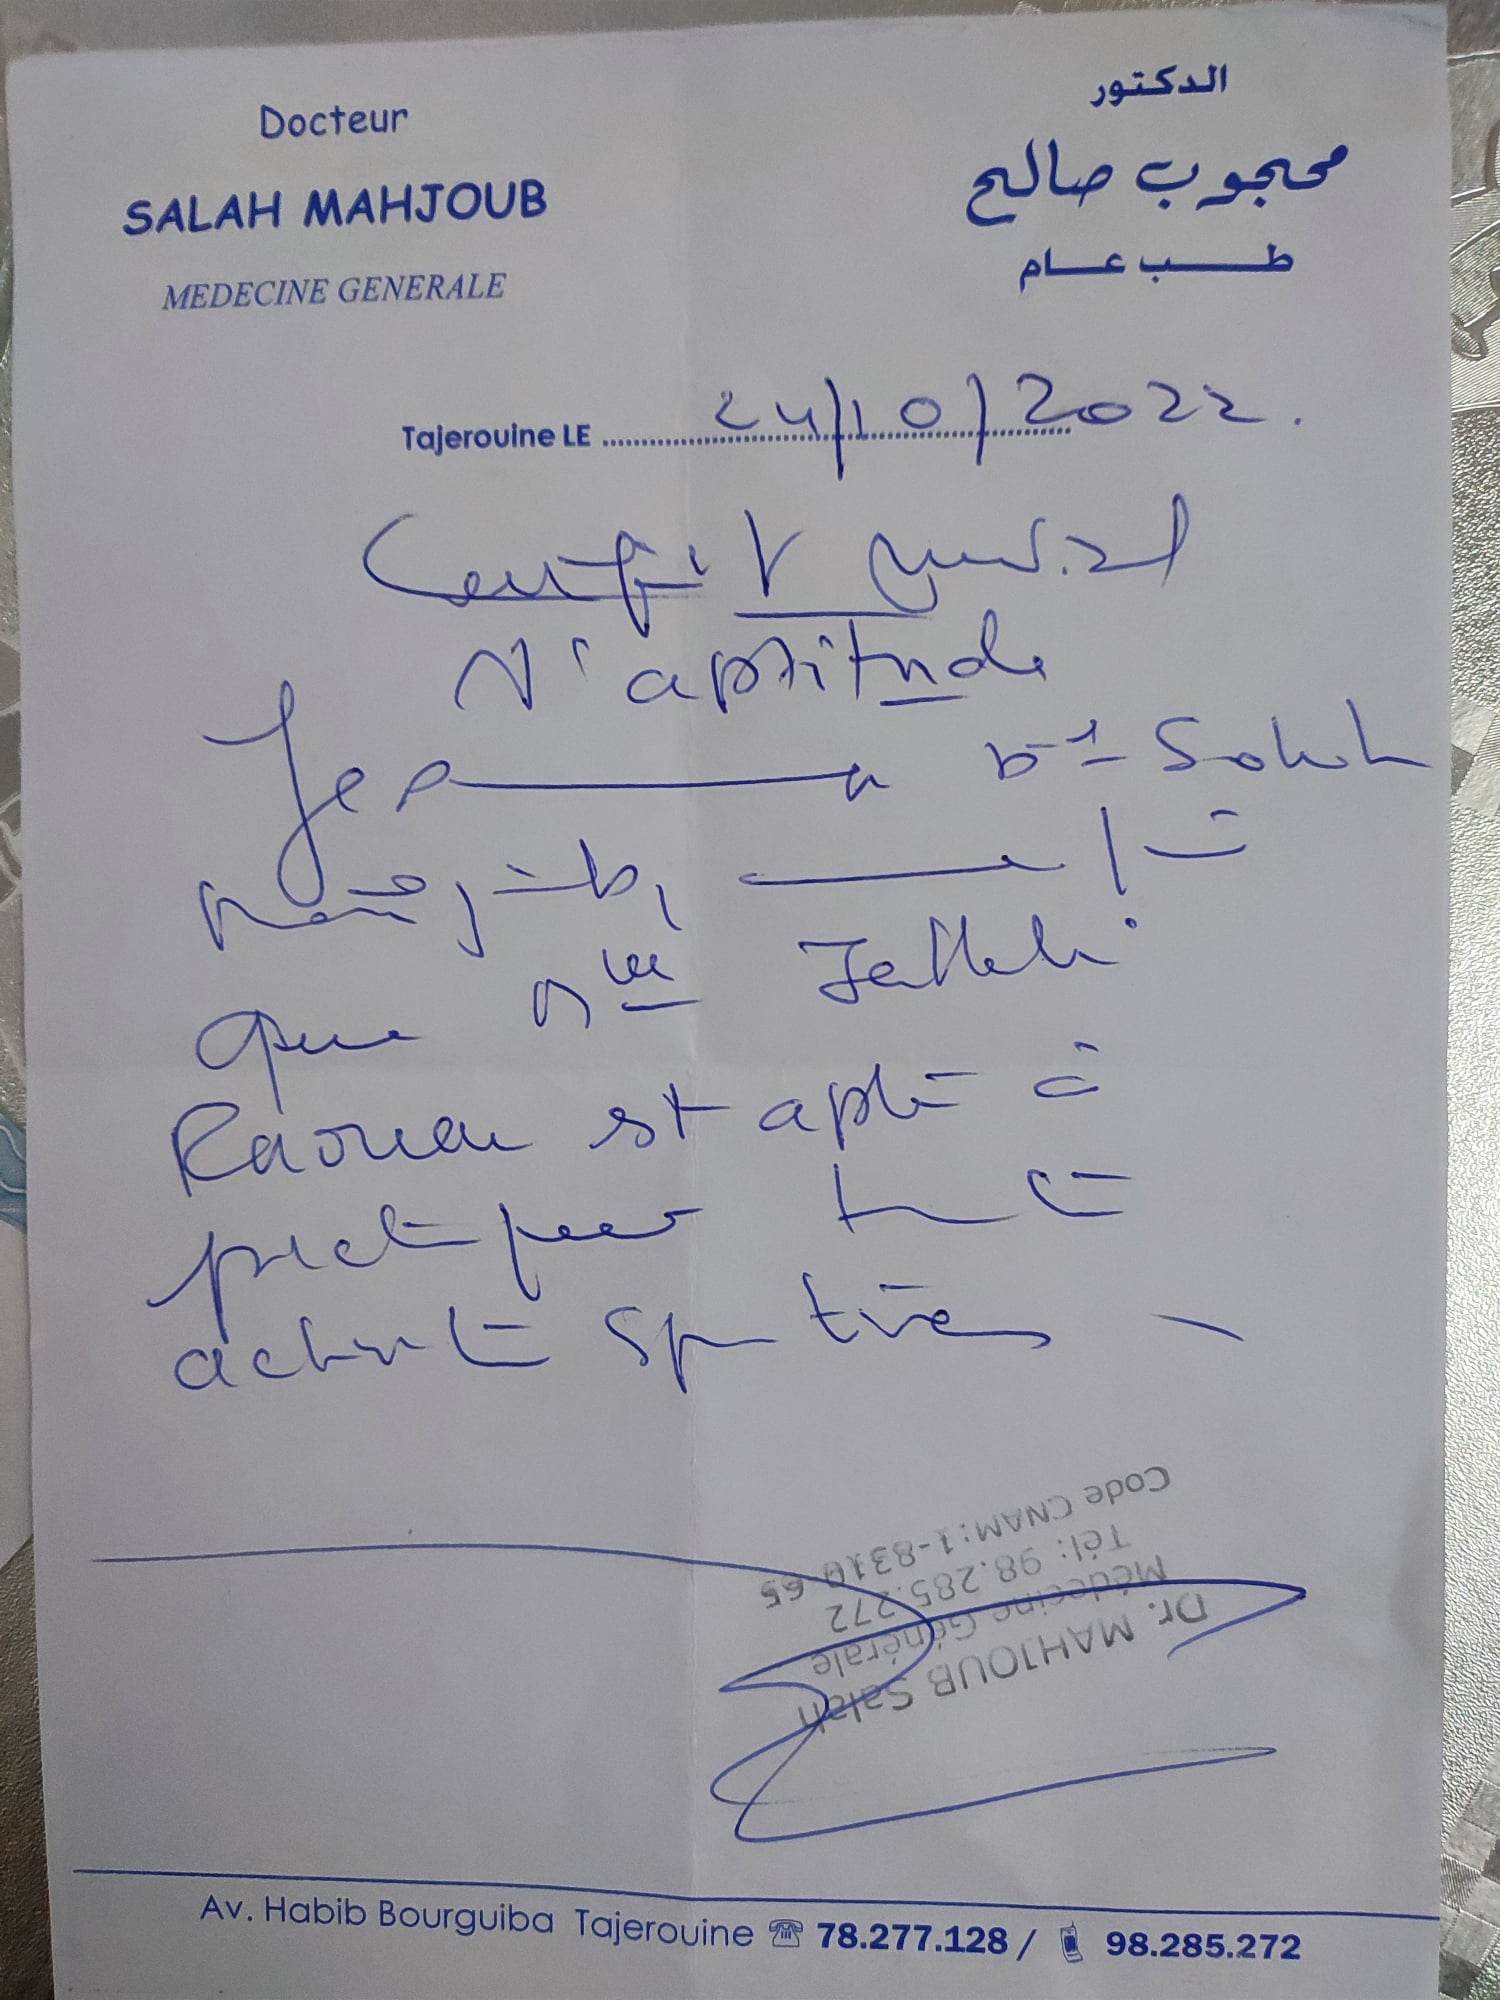 Docteur
SALAH MAHJOUB
MEDECINE GENERALE
الدكتور
محجوب صالح
طب عام
Tajerouine LE 24/10/2022.
Certificat médical
d'aptitude
Je Dr Salah
Mahjoub, atteste
que Mlle Jelleli
Raouen est apte à
pratiquer toute
activité sportives
Code CNAM:1-8310-65
Tél: 98.285.272
Médecine Générale
Dr. MAHJOUB Salah
Av. Habib Bourguiba Tajerouine ☎ 78.277.128 / 98.285.272